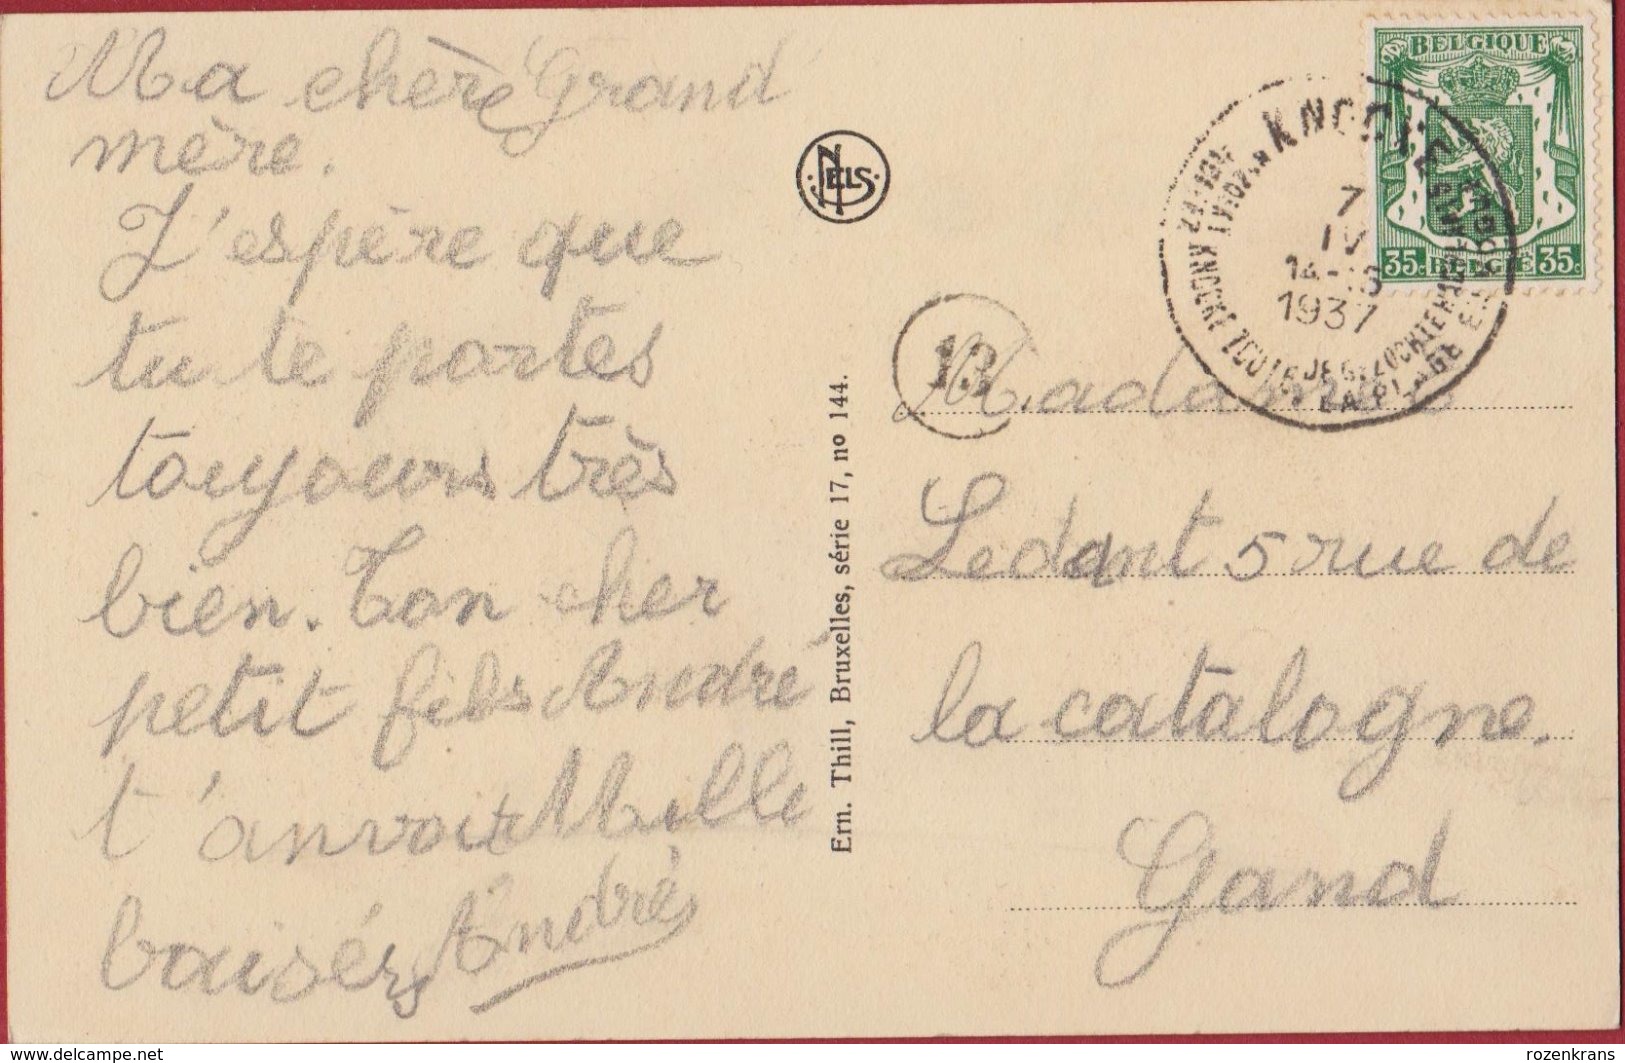 Ma chère Grand
mère.
J'espère que
tu te portes
toujours très
bien. Ton cher
petit fils André
t'anvoit Mille
baisérs André
NELS
Ern. Thill, Bruxelles, série 17, no 144.
13
BELGIQUE
35c BELGIË 35c
7
IV
1937
Madame
Ledant 5 rue de
la catalogne.
Gand
www.delcampe.net
rozenkrans